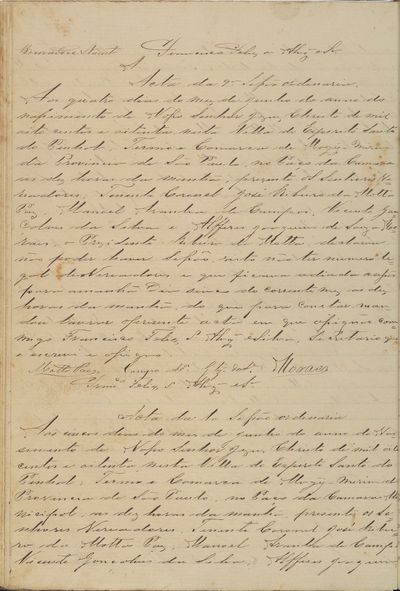 Francisco Felix
Acta da 2ª Sessão ordinaria.
Aos quatro dias do mez de Junho do anno do
nascimento de Nosso Senhor Jezus Christo de mil
oito centos e oitenta nesta Villa do Espirito Santo
do Pinhal, Termo e Comarca de Mogy-mirim
da Provincia de São Paulo, no Paço da Camara
as dez horas da manhã, presente os Senhores Ve-
readores, Tenente Coronel José Ribeiro da Motta
Paes, Manoel Aranha de Campos, Vicente Gon
çalves da Silva e Alferes Joaquim de
o Prezidente Ribeiro da Motta, declarou
não poder haver Sessão, visto não ter numero le-
gal de Vereadores e que ficava adiada a Sessão
para amanhã Dia cinco do corrente mez as dez
horas da manhã, do que para constar man-
dou lavrar a presente acta em que assignão com
migo Francisco Felix Silva, Secretario que
a escrevi e assigno.
Motta Paes Campos Moraes
Felix
Acta da Sessão ordinaria
Aos cinco dias do mez de Junho do anno de Nas
cimento de Nosso Senhor Jezus Christo de mil oito
centos e oitenta nesta Villa do Espirito Santo do
Pinhal, Termo e Comarca de Mogy-Mirim da
Provincia de São Paulo, no Paço da Camara Mu
nicipal, as dez horas da manhã, presente os Se-
nhores Vereadores, Tenente Coronel José Ribei-
ro da Motta Paes, Manoel Aranha de Campos
Vicente Gonçalves da Silva, Alferes Joaquim